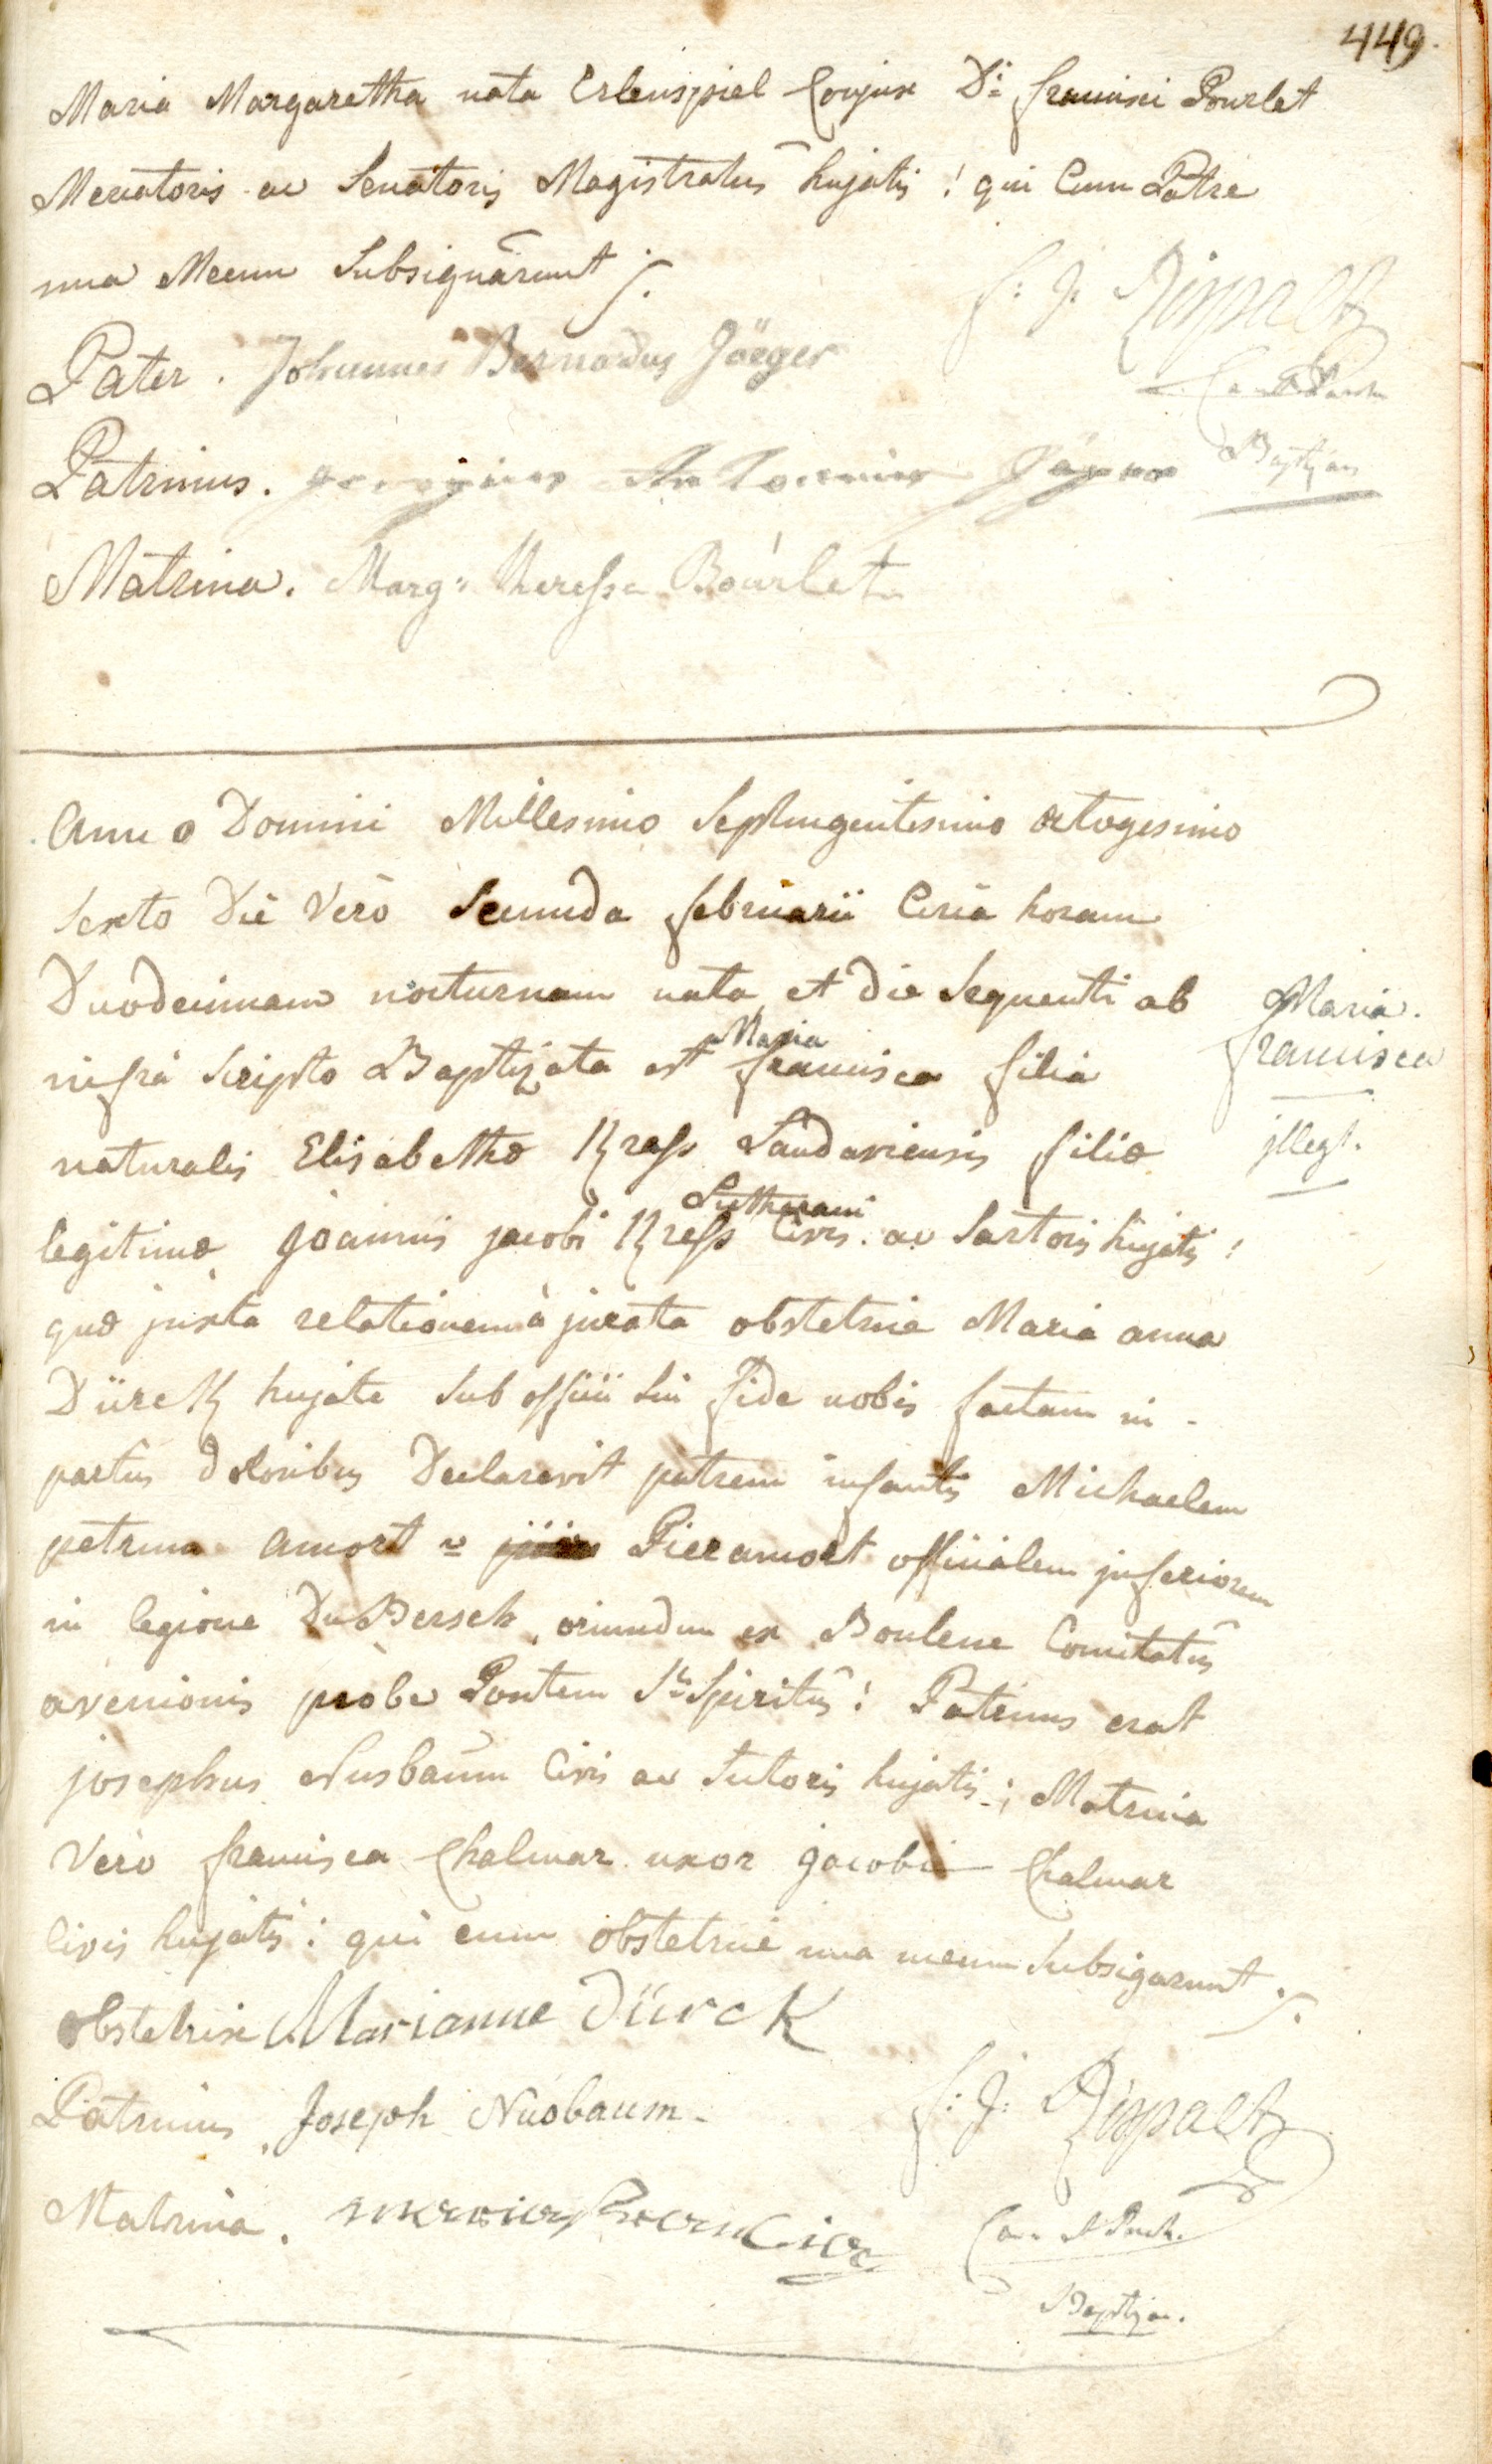 449.
Maria Margaretha nata Erlenspiel Conjux D:i francisci Bourlet
Mercatoris ac Senatoris Magistratûs hujatis! qui Cum Patre
una Mecum Subsignârunt ./.
f: J: Rispaldt
Pater. Johannes Bernadus Jäeger
Can: et Paroch:
Patrinus. georgius Antonius Jäger
Baptizans
Matrina. Marg: Theressa Boúrlet
Anno Domini Millesimo Septingentesimo octogesimo
Sexto Die Verò Secunda februarii Circà horam
Duodecimam nocturnam nata et die Sequenti ab
infrà Scripto Baptizata est Maria francisca filia
Maria francisca
jllegt.
naturalis Elisabethæ Kress Landaviensis filiæ
legitimæ Joannis jacobi Kress Lutherani Civis ac Sartoris hujatis!
quæ juxta relationem à jurata obstetrice Maria anna
Dürck hujate Sub officii Sui fide nobis factam in
partûs doloribus Declaravit patrem infantis Michaelem
petrum Amort v Pieramort officialem jnferiorem
in legione Du Bersch, oriundum ex Boulene Comitatûs
avenionis prope Pontem Sti Spiritûs! Patrinus erat
josephus Nusbaum Civis ac Sutoris hujatis; Matrina
Verò francisca Chalmar uxor jacobi Chalmar
Civis hujatis: qui cum obstetrice una mecum Subsigarunt ./.
obstetrix Marianne Dürck
Patrinus Joseph Nusbaum
f: J: Rispaldt
Matrina.
Can: et Paroch:
Baptizans.